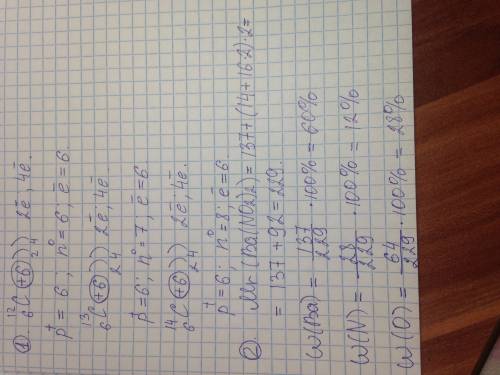 ① ¹²₆C (+6) ) ) 2ē; 4ē.
2 4
p⁺ = 6; n⁰ = 6; ē = 6.
¹³₆C (+6) ) ) 2ē; 4ē.
2 4
p⁺ = 6; n⁰ = 7; ē = 6
¹⁴₆C (+6) ) ) 2ē; 4ē.
2 4
p⁺ = 6; n⁰ = 8; ē = 6
② Mr (Ba(NO₂)₂) = 137 + (14 + 16·2)·2 =
= 137 + 92 = 229.
W(Ba) = 137/229 · 100% = 60%
W(N) = 28/229 · 100% = 12%
W(O) = 64/229 · 100% = 28%